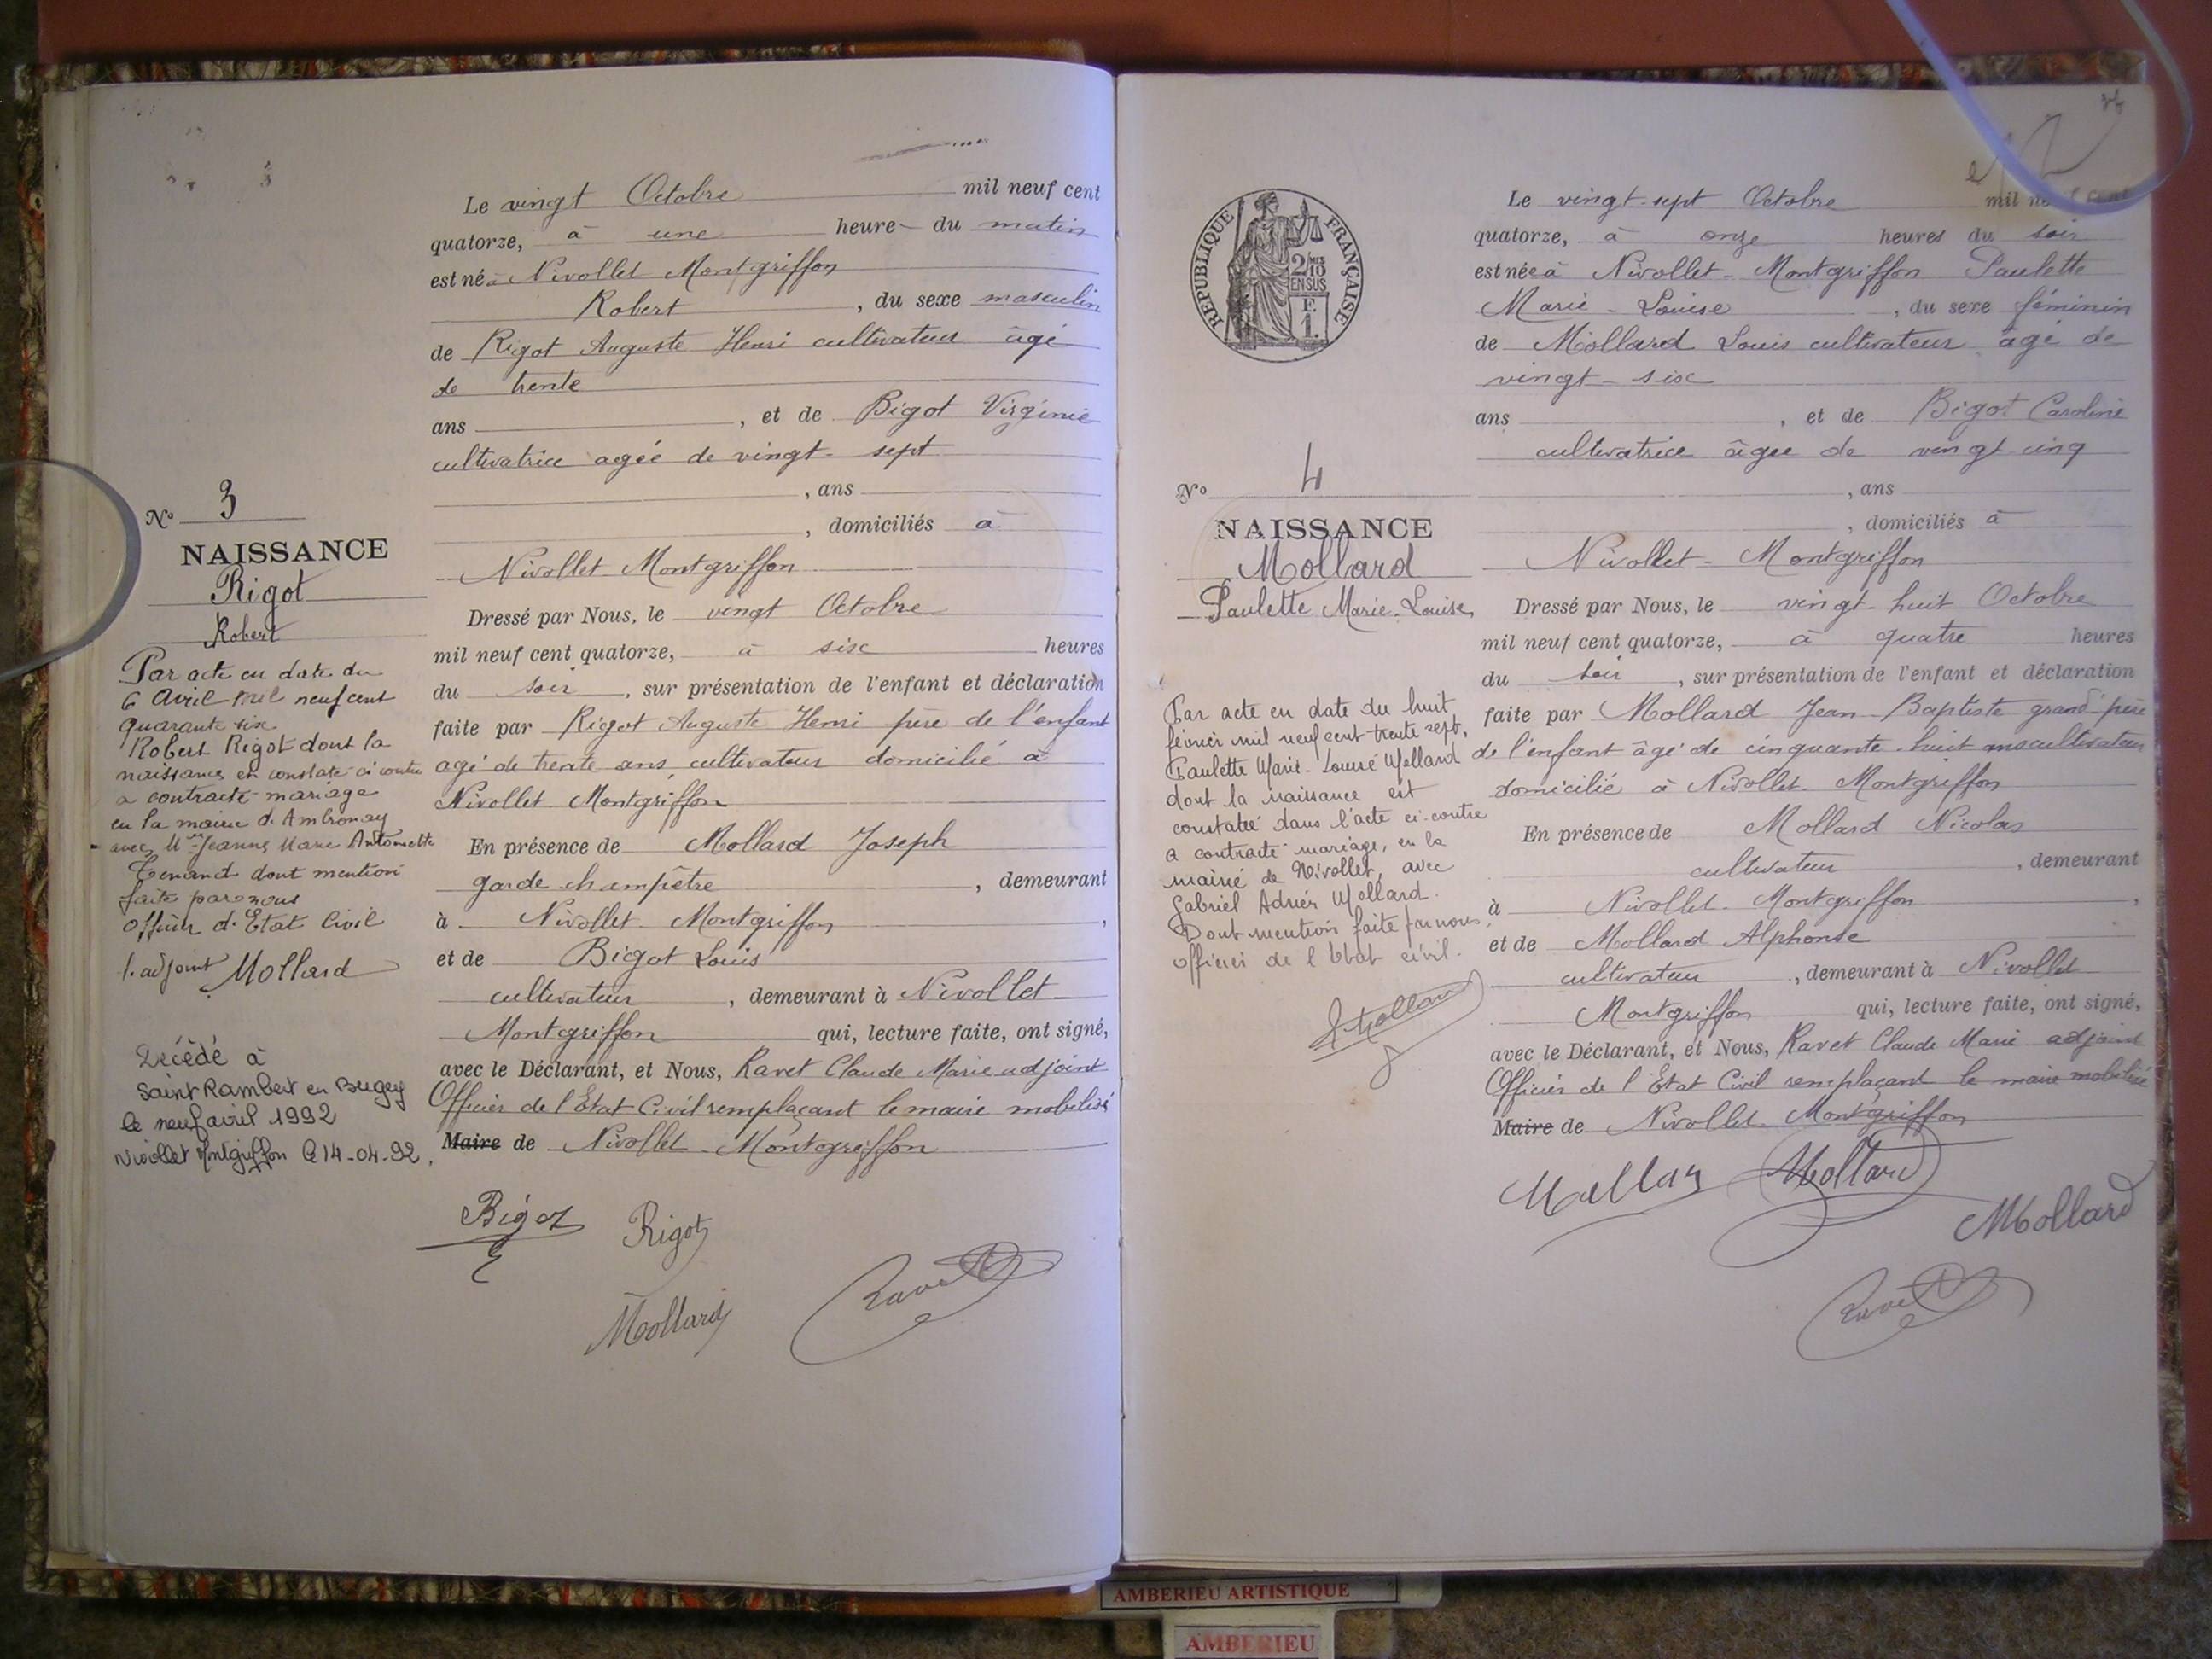 Le vingt Octobre mil neuf cent
quatorze, à une heure du matin
est né à Nivollet Montgriffon
Robert, du sexe masculin
de Rigot Auguste Henri cultivateur âgé
de trente
ans, et de Bigot Virginie
cultivatrice agée de vingt-sept
, ans
, domiciliés à
Nivollet Montgriffon
Dressé par Nous, le vingt Octobre
mil neuf cent quatorze, à six heures
du soir, sur présentation de l'enfant et déclaration
faite par Rigot Auguste Henri père de l'enfant
agé de trente ans, cultivateur domicilié à
Nivollet Montgriffon
En présence de Mollard Joseph
garde champêtre, demeurant
à Nivollet Montgriffon,
et de Bigot Louis
cultivateur, demeurant à Nivollet
Montgriffon qui, lecture faite, ont signé,
avec le Déclarant, et Nous, Ravet Claude Marie adjoint
Officier de l'Etat Civil remplaçant le maire mobilisé
Maire de Nivollet-Montgriffon
Bigot Rigot
Mollard Ravet
No 3
NAISSANCE
Rigot
Robert
Par acte en date du
6 Avril mil neuf cent
quarante six
Robert Rigot dont la
naissance est constatée ci contre
a contracté mariage
en la mairie d'Ambronay
avec Mlle Jeanne Marie Antoinette
Tenand dont mention
faite par nous
Officier d'Etat Civil
l'adjoint Mollard
Décédé à
Saint Rambert en Bugey
le neuf avril 1992
Nivollet Montgriffon le 14-04-92.
RÉPUBLIQUE FRANÇAISE
2/10 MES
EN SUS
F.
1.
No 4
NAISSANCE
Mollard
Paulette Marie-Louise
Par acte en date du huit
février mil neuf cent trente sept,
Paulette Marie-Louise Mollard
dont la naissance est
constatée dans l'acte ci-contre
a contracté mariage, en la
mairie de Nivollet, avec
Gabriel Adrien Mollard.
Dont mention faite par nous,
officier de l'Etat civil.
Mollard
Le vingt-sept Octobre mil neuf cent
quatorze, à onze heures du soir
est née à Nivollet-Montgriffon Paulette
Marie-Louise, du sexe féminin
de Mollard Louis cultivateur âgé de
vingt-six
ans, et de Bigot Caroline
cultivatrice âgée de vingt cinq
, ans
, domiciliés à
Nivollet-Montgriffon
Dressé par Nous, le vingt-huit Octobre
mil neuf cent quatorze, à quatre heures
du soir, sur présentation de l'enfant et déclaration
faite par Mollard Jean-Baptiste grand-père
de l'enfant âgé de cinquante-huit ans cultivateur
domicilié à Nivollet-Montgriffon
En présence de Mollard Nicolas
cultivateur, demeurant
à Nivollet-Montgriffon,
et de Mollard Alphonse
cultivateur, demeurant à Nivollet
Montgriffon qui, lecture faite, ont signé,
avec le Déclarant, et Nous, Ravet Claude Marie adjoint
Officier de l'Etat Civil remplaçant le maire mobilisé
Maire de Nivollet-Montgriffon
Mollard Mollard
Mollard
Ravet
AMBERIEU ARTISTIQUE
AMBERIEU